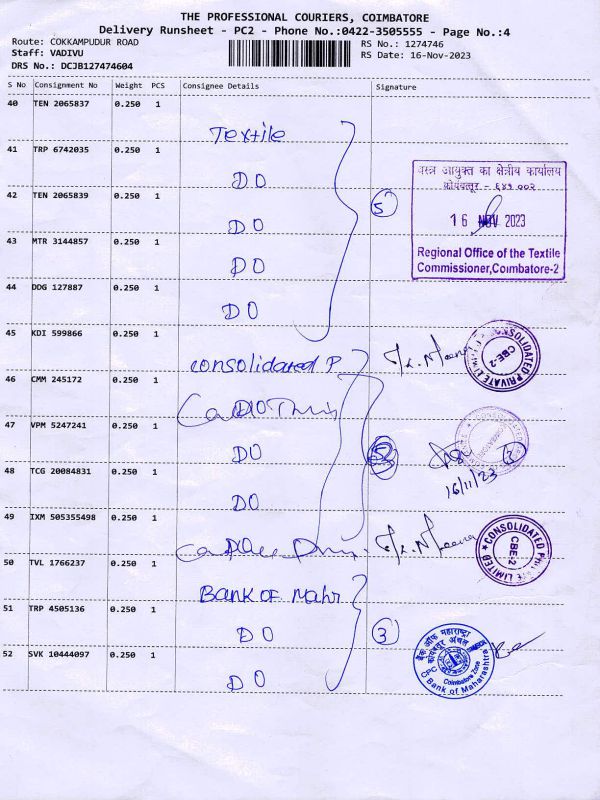 THE PROFESSIONAL COURIERS, COIMBATORE
Delivery Runsheet - PC2 - Phone No.:0422-3505555 - Page No.:4
Route: COKKAMPUDUR ROAD
Staff: VADIVU
DRS No.: DCJB127474604
RS No.: 1274746
RS Date: 16-Nov-2023
S No Consignment No Weight PCS Consignee Details Signature
40 TEN 2065837 0.250 1
Textile
41 TRP 6742035 0.250 1
DO
42 TEN 2065839 0.250 1
DO
43 MTR 3144857 0.250 1
DO
44 DDG 127887 0.250 1
DO
5
वस्त्र आयुक्त का क्षेत्रीय कार्यालय
कोयंबत्तूर - ६४१ ००२
16 NOV 2023
Regional Office of the Textile
Commissioner,Coimbatore-2
45 KDI 599866 0.250 1
consolidated P
CONSOLIDATED PRIVATE LIMITED
CBE-2
46 CMM 245172 0.250 1
DO
47 VPM 5247241 0.250 1
DO
48 TCG 20084831 0.250 1
DO
16/11/23
49 IXM 505355498 0.250 1
CONSOLIDATED PRIVATE LIMITED
CBE-2
50 TVL 1766237 0.250 1
Bank of Mahr
51 TRP 4505136 0.250 1
DO
3
52 SVK 10444097 0.250 1
DO
बैंक ऑफ महाराष्ट्र
कोयंबतूर अंचल
Coimbatore Zone
Bank of Maharashtra